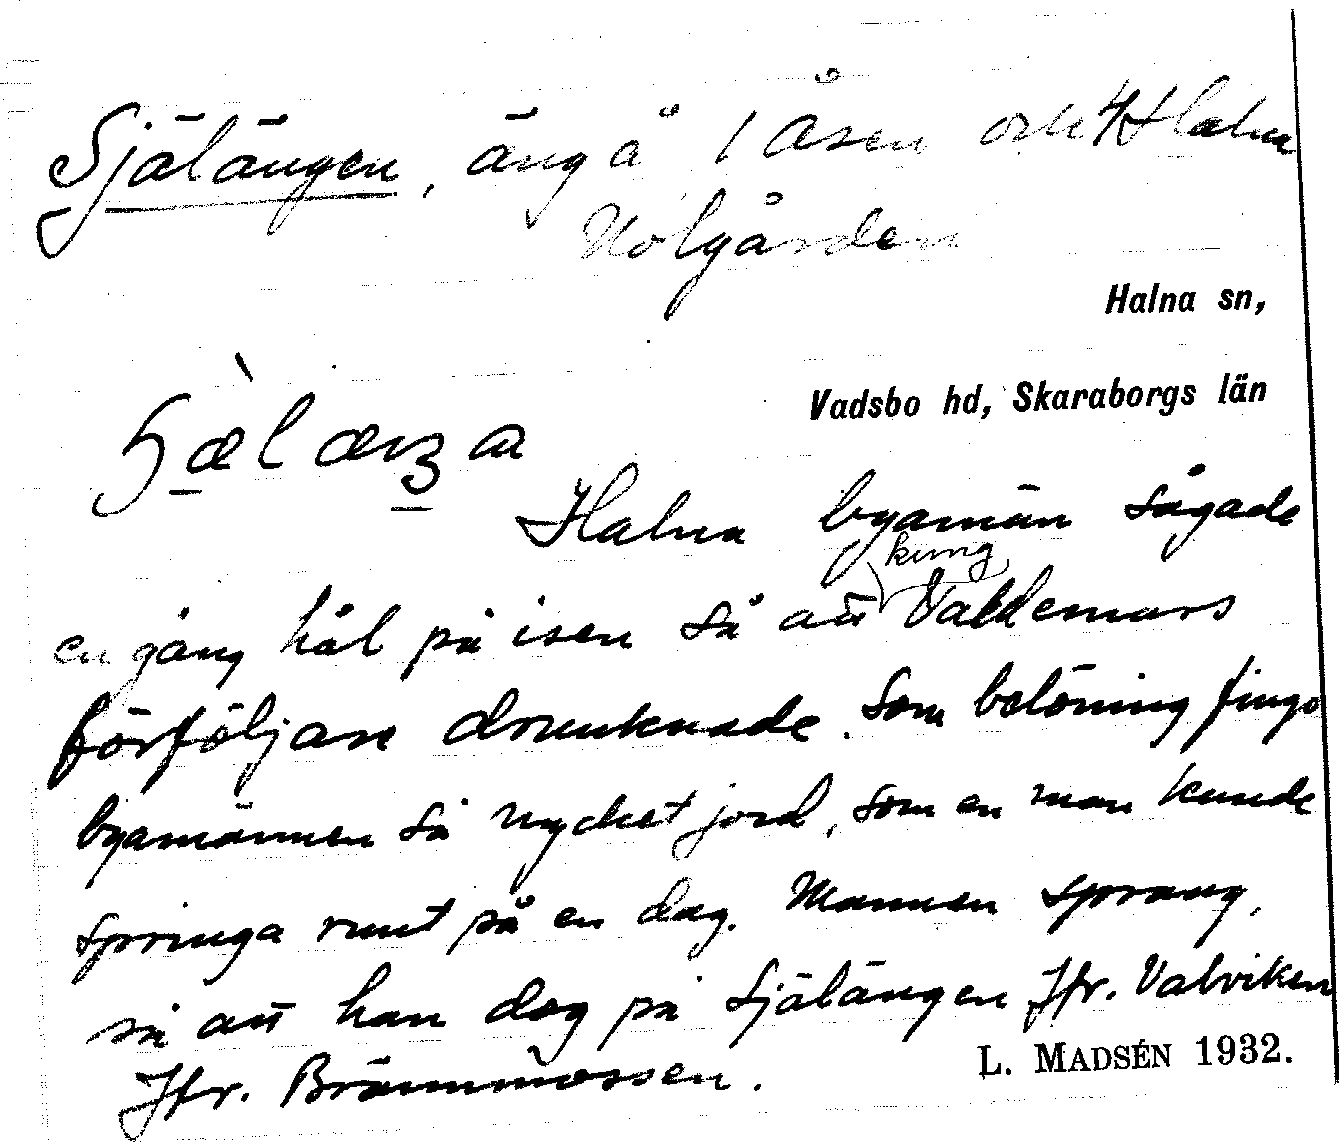 Själängen, äng å 1 Åsen och 4 Halna
Nolgården
Halna sn,
Vadsbo hd, Skaraborgs län
Halna byamän sågade
en gång hål på isen så att kung Valdemars
förföljare drunknade. Som belöning fingo
byamännen så mycket jord, som en man kunde
springa runt på en dag. Mannen sprang,
så att han dog på Själängen Jfr. Valviken
Jfr. Brännmossen.
L. MADSÉN 1932.